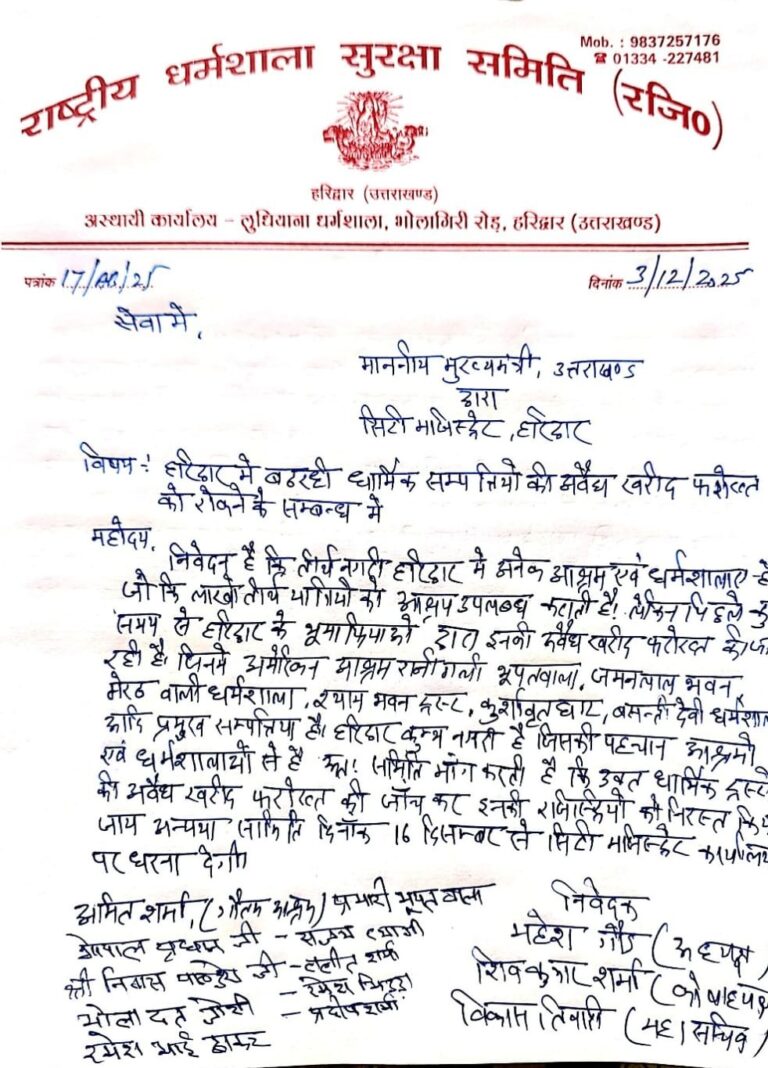 Mob. : 9837257176
☎ 01334 -227481
राष्ट्रीय धर्मशाला सुरक्षा समिति (रजि0)
हरिद्वार (उत्तराखण्ड)
अस्थायी कार्यालय – लुधियाना धर्मशाला, भोलागिरी रोड़, हरिद्वार (उत्तराखण्ड)
पत्रांक 17/AB/25 दिनांक 3/12/2025
सेवा में,
माननीय मुख्यमंत्री, उत्तराखण्ड
द्वारा
सिटी मजिस्ट्रेट, हरिद्वार
विषय : हरिद्वार मे बढ रही धार्मिक सम्पत्तियो की अवैध खरीद फरोख्त
को रोकने के सम्बन्ध में
महोदय,
निवेदन है कि तीर्थ नगरी हरिद्वार मे अनेक आश्रम एवं धर्मशालाए है
जो कि लाखो तीर्थ यात्रियो को आश्रय उपलब्ध कराती है। लेकिन पिछले कु
समय से हरिद्वार के भूमाफियाओ द्वारा इनकी अवैध खरीद फरोख्त की जा
रही है। जिनमे अमेरिकन आश्रम रानीगली भूपतवाला, जमनालाल भवन,
मेरठ वाली धर्मशाला, श्याम भवन ट्रस्ट, कुशावृत घाट, बसन्ती देवी धर्मशाल
आदि प्रमुख सम्पत्तिया है। हरिद्वार कुम्भ नगरी है जिसकी पहचान आश्रमो
एवं धर्मशालाओ से है अतः समिति मांग करती है कि उक्त धार्मिक ट्रस्टो
की अवैध खरीद फरोख्त की जाँच कर इनकी रजिस्ट्रियो को निरस्त किय
जाय अन्यथा समिति दिनाँक 16 दिसम्बर से सिटी मजिस्ट्रेट कार्यालय
पर धरना देगी।
निवेदक
अमित शर्मा, (गौतम आश्रम) प्रभारी भूपतवाला
महेश गौड़ (अध्यक्ष)
गोपाल प्रधान जी – संजय त्यागी
शिवकुमार शर्मा (कोषाध्यक्ष
श्री निवास पाण्डेय जी – ललित शर्मा
विकास तिवारी (महासचिव)
भोला दत्त जोशी – प्रदीप शर्मा
रमेश भाई ठाकर